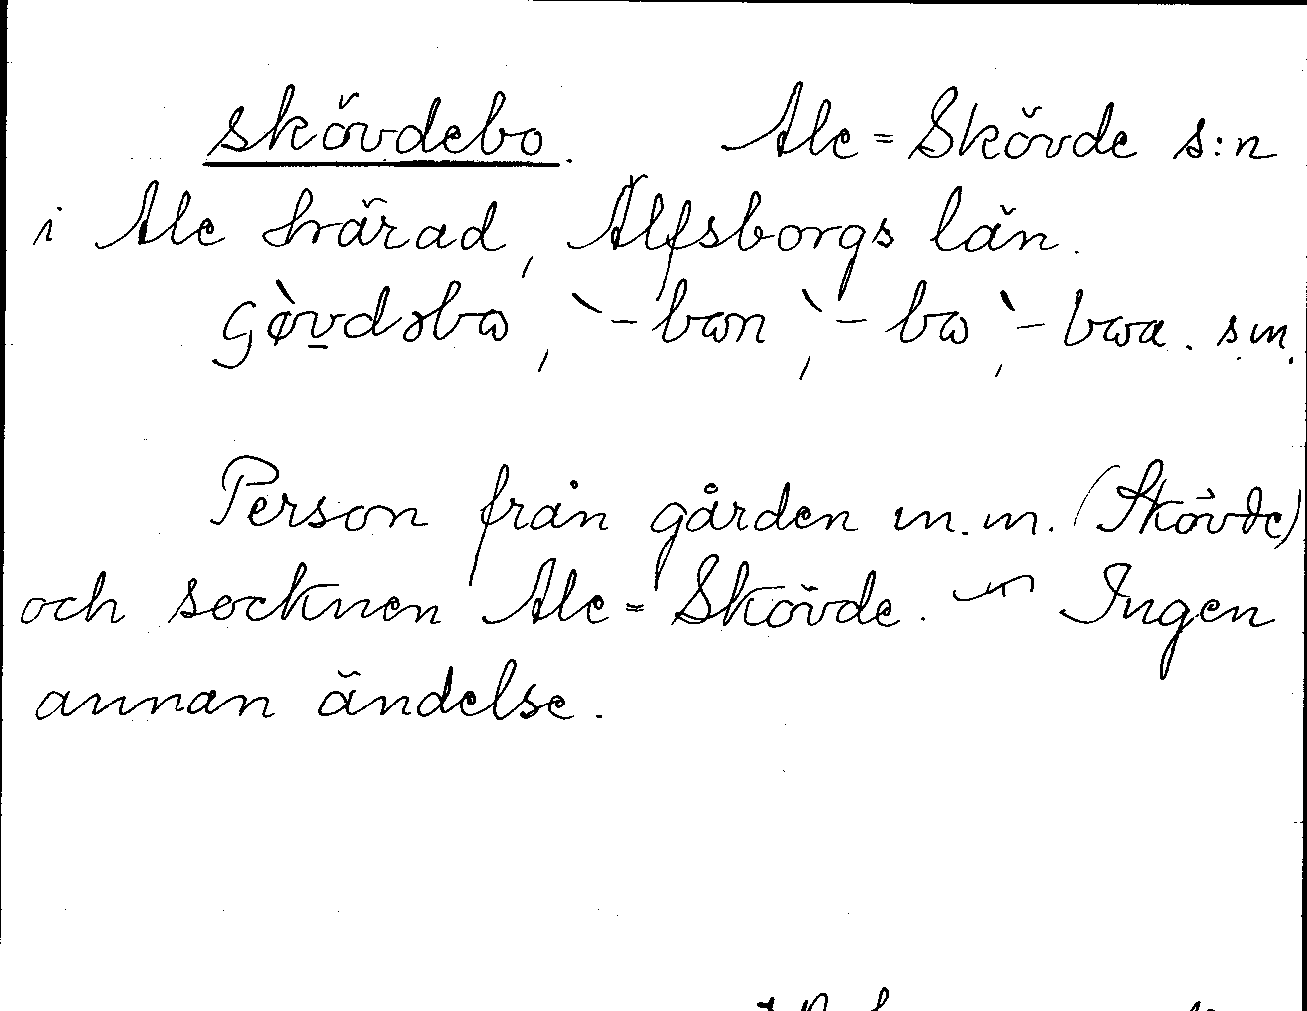 skövdebo. Ale=Skövde s:n
i Ale härad, Älfsborgs län.
, `-bɷn, `-bɷ, `-bɷa. s.m.
Person från gården m.m. (Skövde)
och socknen Ale=Skövde. — Ingen
annan ändelse.